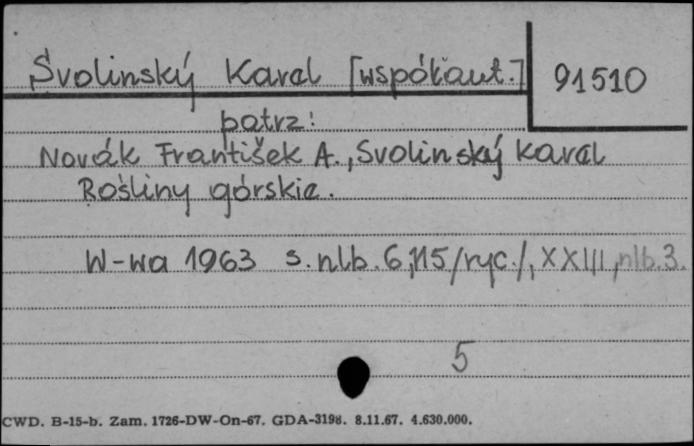 Svolinský Karel [współaut.] 91510
patrz:
Novák František A., Svolinský Karel
Rośliny górskie.
W-wa 1963 s. nlb. 6,115/ryc./, XXIII, nlb. 3.
5
CWD. B-15-b. Zam. 1726-DW-On-67. GDA-3198. 8.11.67. 4.630.000.